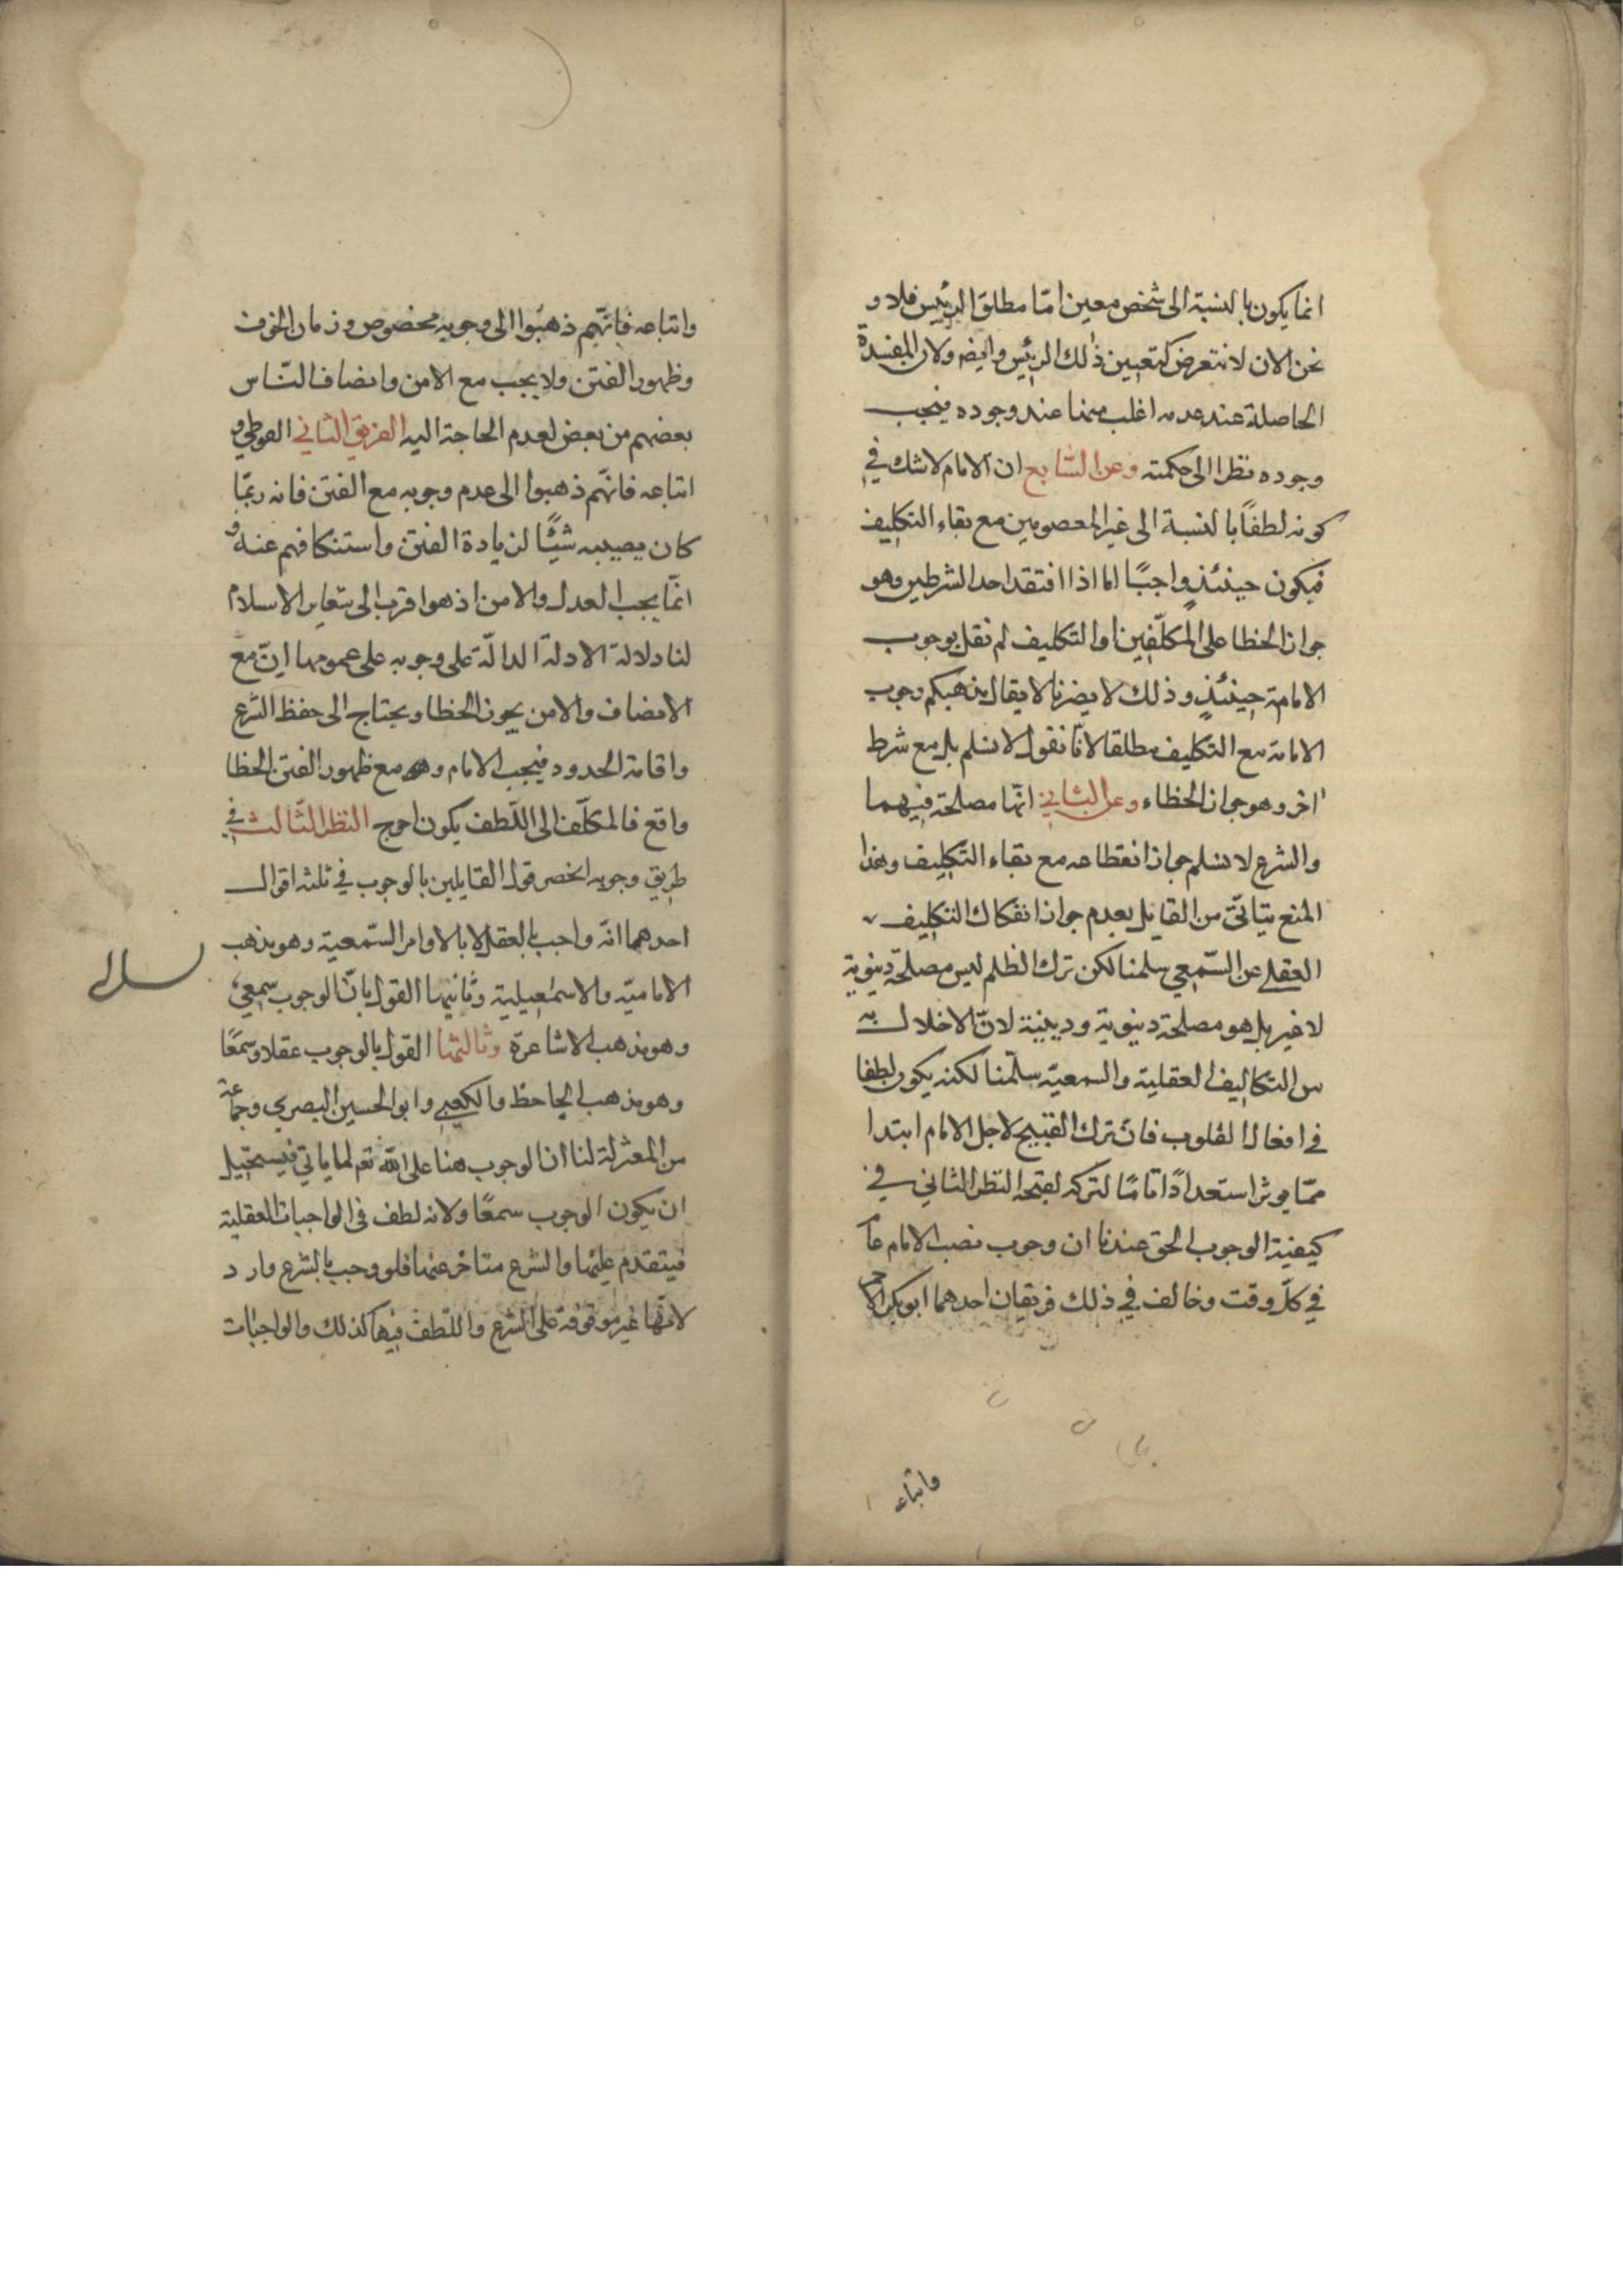 انما يكون بالنسبة الى شخص معين امّا مطلق الرئيس فلا و
نحن الان لا نتعرض لتعيين ذلك الرئيس وايضه ولان المفسدة
الحاصلة عند عدمه اغلب منها عند وجوده فيجب
وجوده نظرا الى حكمته وعن السّابع ان الامام لا شك في
كونه لطفاً بالنسبة الى غير المعصومين مع بقاء التكليف
فيكون حينئذٍ واجبًا اما اذا افتقد احد الشرطين وهو
جواز الخطا على المكلّفين او التكليف لم نقل بوجوب
الامامة حينئذٍ وذلك لا يضرنا لا يقال مذهبكم وجوب
الامامة مع التكليف مطلقا لانّا نقول لا نسلم بل مع شرط
اخر وهو جواز الخطاء وعن الثاني انّها مصلحة فيهما
والشرع لا نسلم جواز انقطاعه مع بقاء التكليف وهذا
المنع يتاتّى من القايل بعدم جواز انفكاك التكليف
العقلي عن السّمعي سلمنا لكن ترك الظلم ليس مصلحة دنيوية
لا غير بل هو مصلحة دنيوية ودينية لانّ الاخلال به
من التكاليف العقلية والسمعيّة سلّمنا لكنه يكون لطفا
في افعال القلوب فانّ ترك القبيح لاجل الامام ابتدا
ممّا يوثر استعدادًا تامًا لتركه لقبحه النظر الثاني في
كيفية الوجوب الحق عندنا ان وجوب نصب الامام عا
في كلّ وقت وخالف في ذلك فريقان احدهما ابو بكر الاصم
واتباعه
واتباعه فانّهم ذهبوا الى وجوبه مخصوص وزمان الخوف
وظهور الفتن ولا يجب مع الامن وانصاف النّاس
بعضهم من بعض لعدم الحاجة اليه الفريق الثاني الفوطي و
اتباعه فانّهم ذهبوا الى عدم وجوبه مع الفتن فانه ربّما
كان يصيبه شيًّا لزيادة الفتن واستنكافهم عنه و
انّما يجب العدل والامن اذ هو اقرب الى شعاير الاسلام
لنا دلالة الادلة الدالّة على وجوبه على عمومها انّ مع
الانصاف والامن يجوز الخطا ويحتاج الى حفظ الشرع
واقامة الحدود فيجب الامام و مع ظهور الفتن الخطا
واقع فالمكلّف الى اللّطف يكون احوج النظر الثّالث في
طريق وجوبه انحصر قول القايلين بالوجوب في ثلثه اقوال
احدهما انّه واجب بالعقل لا بالاوامر السّمعية وهو مذهب
الاماميّه والاسمٰعيلية وثانيها القول بانّ الوجوب سمعي
وهو مذهب الاشاعرة وثالثها القول بالوجوب عقلا وسمعًا
وهو مذهب الجاحظ والكعبي وابو الحسين البصري وجماعة
من المعتزلة لنا ان الوجوب هنا على الله تعم لما ياتي فيستحيل
ان يكون الوجوب سمعًا ولانه لطف في الواجبات العقلية
فيتقدم عليها والشرع متاخر عنها فلو وجب بالشرع دار د
لانّها غير موقوفة على الشرع واللطف فيها كذلك والواجبات